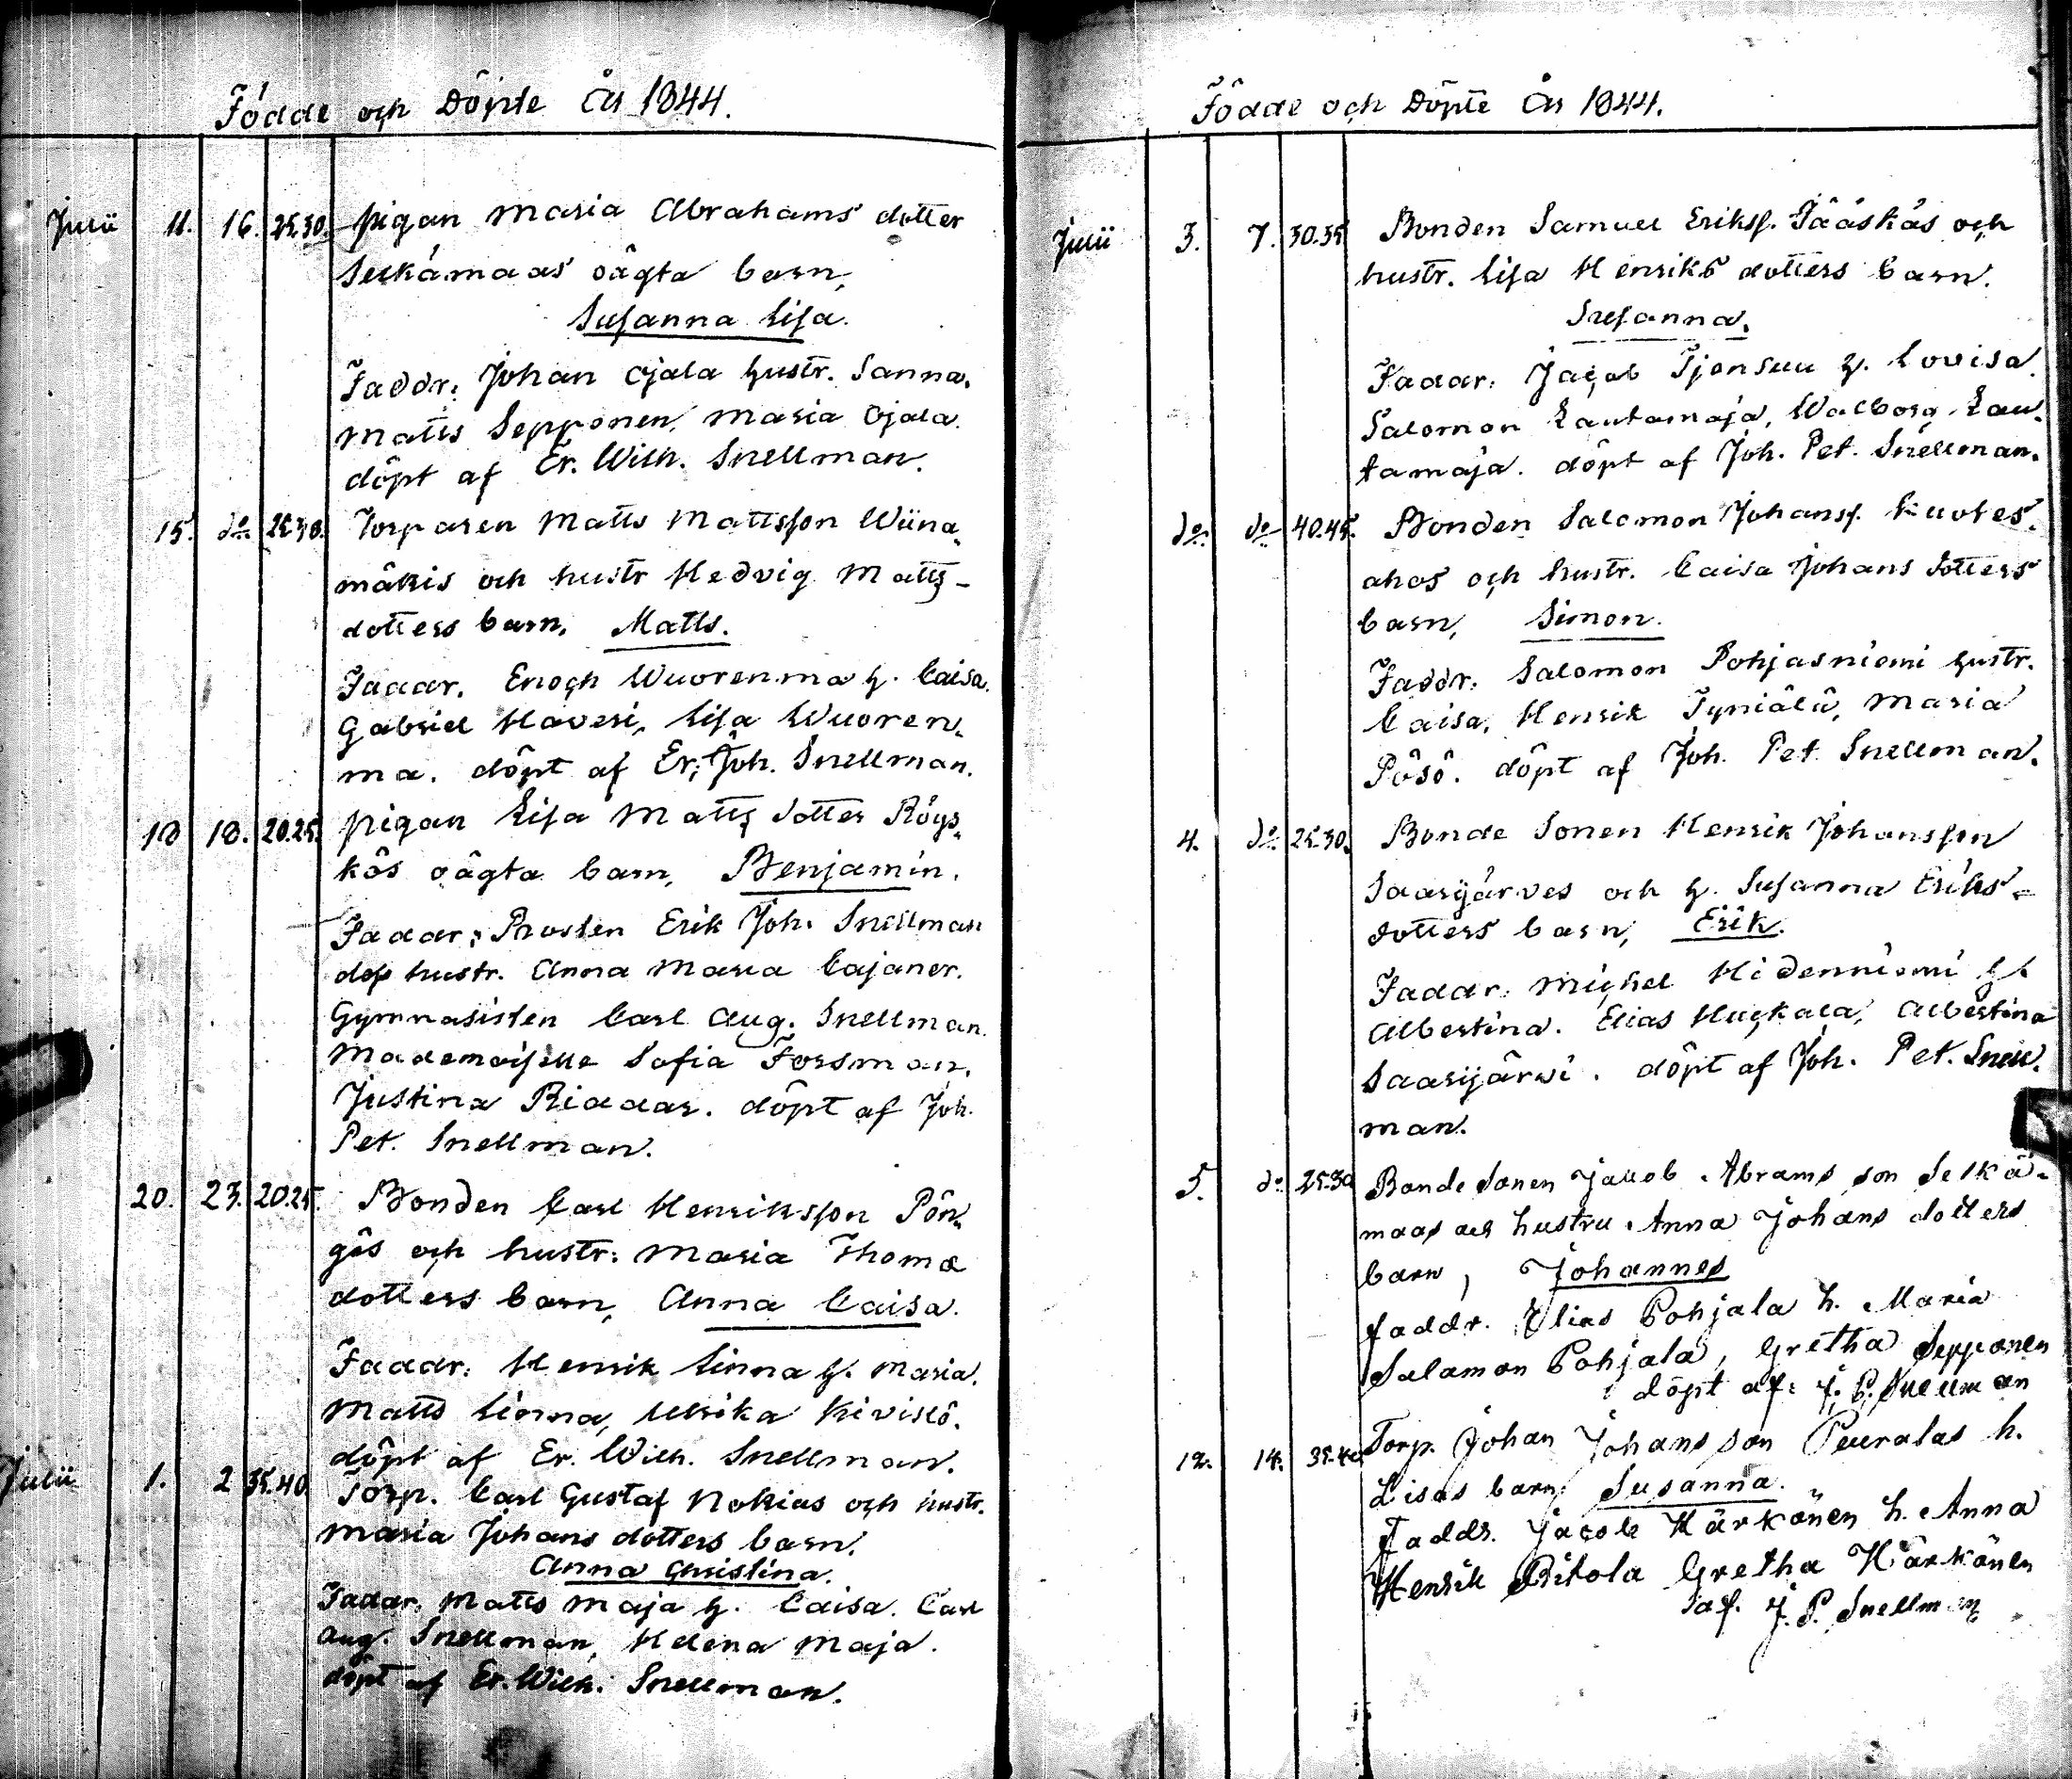 Födde och Döpte År 1844.
Junii 11. 16. 25.30. pigan Maria Abrahams dotter
Selkämaas oägta barn,
Susanna Lisa.
Faddr: Johan Ojala hustr. Sanna.
Matts Sepponen, Maria Ojala.
döpt af Er. Wilh. Snellman.
15. do 25.30. Torparen Matts Mattsson Wiina-
mäkis och hustr Hedvig Matts-
dotters barn, Matts.
Faddr. Enoch Wuorenma h. Caisa.
Gabriel Haveri, Lisa Wuoren-
ma. döpt af Er. Joh. Snellman.
18 18. 20.25. pigan Lisa Matts dotter Röys-
kös oägta barn, Benjamin.
Faddr: Prosten Erik Joh. Snellman
dess hustr. Anna Maria Cajaner.
Gymnasisten Carl Aug. Snellman.
Mademoiselle Sofia Forsman.
Justina Riddar. döpt af Joh.
Pet. Snellman.
20. 23. 20.25. Bonden Carl Henriksson Pön-
gös och hustr: Maria Thomæ
dotters barn, Anna Caisa.
Faddr: Henrik Linna h. Maria.
Matts Linna, Ulrika Kivistö.
döpt af Er. Wilh. Snellman.
Julii 1. 2 35.40 Torp. Carl Gustaf Nokias och hustr.
Maria Johans dotters barn.
Anna Christina.
Faddr. Matts Maja h. Caisa. Carl
Aug. Snellman, Helena Maja.
döpt af Er. Wilh. Snellman.
Födde och Döpte År 1844.
Julii 3. 7. 30.35 Bonden Samuel Eriks. Jääskös och
hustr. Lisa Henriks dotters barn.
Susanna.
Faddr: Jacob Tjonsuu h. Lovisa.
Salomon Lautamaja, Walborg Lau-
tamaja. döpt af Joh. Pet. Snellman.
do do 40.45. Bonden Salomon Johans.
ahos och hustr. Caisa Johans dotters
barn, Simon.
Faddr: Salomon Pohjasniemi hustr.
Caisa, Henrik Tyniälä, Maria
Pösö. döpt af Joh. Pet. Snellman.
4. do 25.30. Bonde Sonen Henrik Johansson
Saarijärves och h. Susanna Eriks-
dotters barn, Erik.
Faddr: Michel Hidenniemi h.
Albertina. Elias Huckala, Albertina
Saarijärwi. döpt af Joh. Pet. Snell-
man.
5. do 25.30 Bonde Sonen Jacob Abrams son Selkä-
maas och hustru Anna Johans dotters
barn, Johannes
faddr. Elias Pohjala h. Maria
Salamon Pohjala, Gretha Sepponen
döpt af: J. P. Snellman
12. 14. 35.40 Torp. Johan Johans son Peuralas h.
Lisas barn: Susanna.
Faddr. Jacob Härkönen h. Anna
Henrik Pitola Gretha Härkönen
af. J. P. Snellman